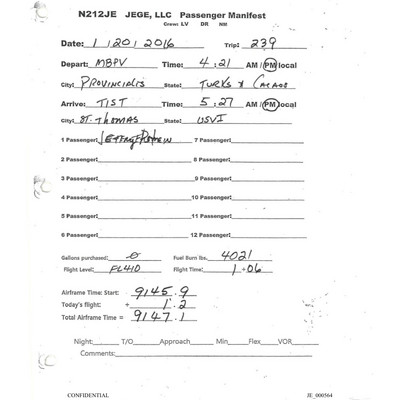 N212JE JEGE, LLC Passenger Manifest
Crew: LV DR NM
Date: 1 / 20 / 2016 Trip: 239
Depart: MBPV Time: 4 : 21 AM / PM local
City: PROVINCIALIS State: TURKS & CACAOS
Arrive: TIST Time: 5 : 27 AM / PM local
City: ST. THOMAS State: USVI
1 Passenger: JEFFREY EPSTEIN 7 Passenger:
2 Passenger: 8 Passenger:
3 Passenger: 9 Passenger:
4 Passenger: 10 Passenger:
5 Passenger: 11 Passenger:
6 Passenger: 12 Passenger:
Gallons purchased: 0 Fuel Burn lbs. 4021
Flight Level: FL410 Flight Time: 1 + 06
Airframe Time: Start: 9145.9
Today's flight: + 1.2
Total Airframe Time = 9147.1
Night: T/O Approach Min Flex VOR
Comments:
CONFIDENTIAL JE_000564